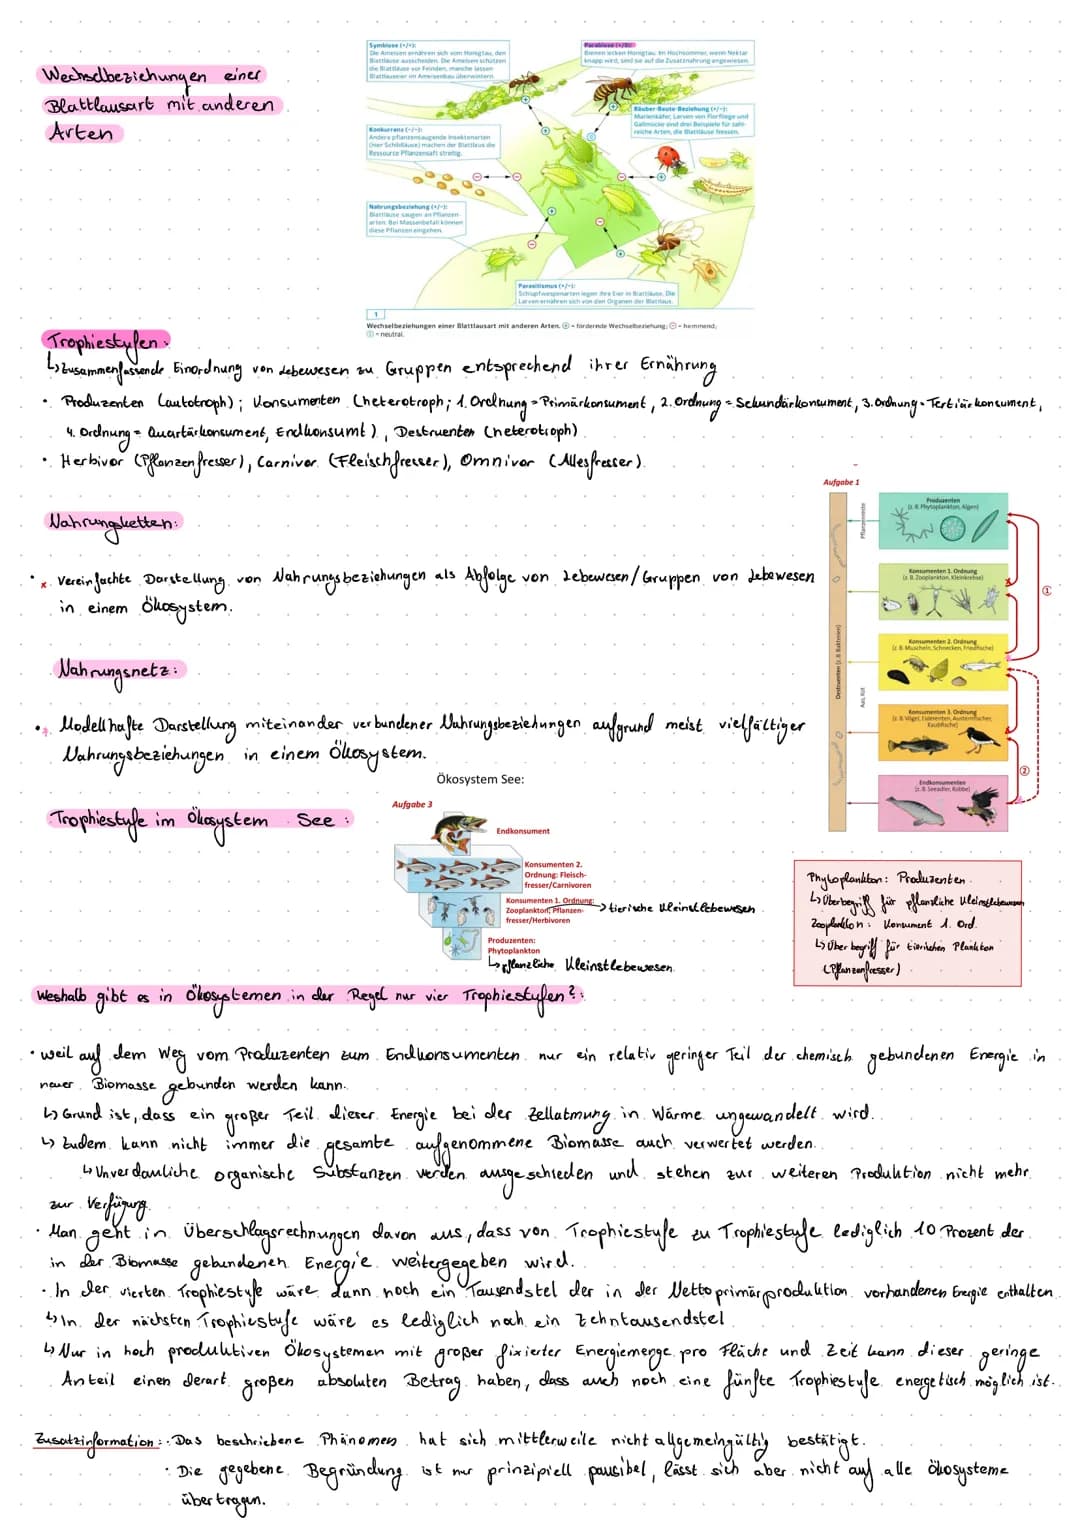 Wechselbeziehungen einer
Blattlausart mit anderen
Arten
Symbiose (+/+):
Die Ameisen ernähren sich vom Honigtau, den
Blattläuse ausscheiden. Die Ameisen schützen
die Blattläuse vor Feinden, manche lassen
Blattlauseier im Ameisenbau überwintern.
Parabiose (+/0):
Bienen lecken Honigtau. Im Hochsommer, wenn Nektar
knapp wird, sind sie auf die Zusatznahrung angewiesen.
Räuber-Beute-Beziehung (+/-):
Marienkäfer, Larven von Florfliege und
Gallmücke sind drei Beispiele für zahl-
reiche Arten, die Blattläuse fressen.
Konkurrenz (-/-):
Andere pflanzensaugende Insektenarten
(hier Schildläuse) machen der Blattlaus die
Ressource Pflanzensaft streitig.
Nahrungsbeziehung (+/-):
Blattläuse saugen an Pflanzen-
arten. Bei Massenbefall können
diese Pflanzen eingehen.
Parasitismus (+/-):
Schlupfwespenarten legen ihre Eier in Blattläuse. Die
Larven ernähren sich von den Organen der Blattlaus.
1
Wechselbeziehungen einer Blattlausart mit anderen Arten. ⊕ = fördernde Wechselbeziehung; ⊖ = hemmend;
= neutral.
Trophiestufen:
↳ Zusammenfassende Einordnung von Lebewesen zu Gruppen entsprechend ihrer Ernährung
• Produzenten (autotroph); Konsumenten (heterotroph; 1. Ordnung = Primärkonsument, 2. Ordnung = Sekundärkonsument, 3. Ordnung = Tertiärkonsument,
4. Ordnung = Quartärkonsument, Endkonsumt), Destruenten (heterotroph)
• Herbivor (Pflanzenfresser), Carnivor (Fleischfresser), Omnivor (Allesfresser)
Nahrungsketten:
• Vereinfachte Darstellung von Nahrungsbeziehungen als Abfolge von Lebewesen/Gruppen von Lebewesen
in einem Ökosystem.
Nahrungsnetz:
• Modellhafte Darstellung miteinander verbundener Nahrungsbeziehungen aufgrund meist vielfältiger
Nahrungsbeziehungen in einem Ökosystem.
Aufgabe 1
Destruenten (z. B. Bakterien)
Pflanzenreste
Aas, Kot
Produzenten
(z. B. Phytoplankton, Algen)
Konsumenten 1. Ordnung
(z. B. Zooplankton, Kleinkrebse)
Konsumenten 2. Ordnung
(z. B. Muscheln, Schnecken, Friedfische)
Konsumenten 3. Ordnung
(z. B. Vögel, Eiderenten, Austernfischer,
Raubfische)
Endkonsumenten
(z. B. Seeadler, Robbe)
①
②
Ökosystem See:
Trophiestufe im Ökosystem See:
Aufgabe 3
Endkonsument
Konsumenten 2.
Ordnung: Fleisch-
fresser/Carnivoren
Konsumenten 1. Ordnung:
Zooplankton, Pflanzen-
fresser/Herbivoren
→ tierische Kleinstlebewesen
Produzenten:
Phytoplankton
↳ pflanzliche Kleinstlebewesen
Phytoplankton: Produzenten
↳ Überbegriff für pflanzliche Kleinstlebewesen
Zooplankton: Konsument 1. Ord.
↳ Überbegriff für tierischen Plankton
(Pflanzenfresser)
Weshalb gibt es in Ökosystemen in der Regel nur vier Trophiestufen?:
• weil auf dem Weg vom Produzenten zum Endkonsumenten nur ein relativ geringer Teil der chemisch gebundenen Energie in
neuer Biomasse gebunden werden kann.
↳ Grund ist, dass ein großer Teil dieser Energie bei der Zellatmung in Wärme umgewandelt wird.
↳ Zudem kann nicht immer die gesamte aufgenommene Biomasse auch verwertet werden.
↳ Unverdauliche organische Substanzen werden ausgeschieden und stehen zur weiteren Produktion nicht mehr
zur Verfügung.
• Man geht in Überschlagsrechnungen davon aus, dass von Trophiestufe zu Trophiestufe lediglich 10 Prozent der
in der Biomasse gebundenen Energie weitergegeben wird.
• In der vierten Trophiestufe wäre dann noch ein Tausendstel der in der Nettoprimärproduktion vorhandenen Energie enthalten.
↳ In der nächsten Trophiestufe wäre es lediglich noch ein Zehntausendstel
↳ Nur in hoch produktiven Ökosystemen mit großer fixierter Energiemenge pro Fläche und Zeit kann dieser geringe
Anteil einen derart großen absoluten Betrag haben, dass auch noch eine fünfte Trophiestufe energetisch möglich ist.
Zusatzinformation: • Das beschriebene Phänomen hat sich mittlerweile nicht allgemeingültig bestätigt.
• Die gegebene Begründung ist nur prinzipiell pausibel, lässt sich aber nicht auf alle Ökosysteme
übertragen.